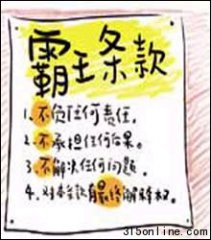 霸王条款
1、不负任何责任.
2、不承担任何后果。
3、不解决任何问题.
4、对本条款有最终解释权.
315online.com